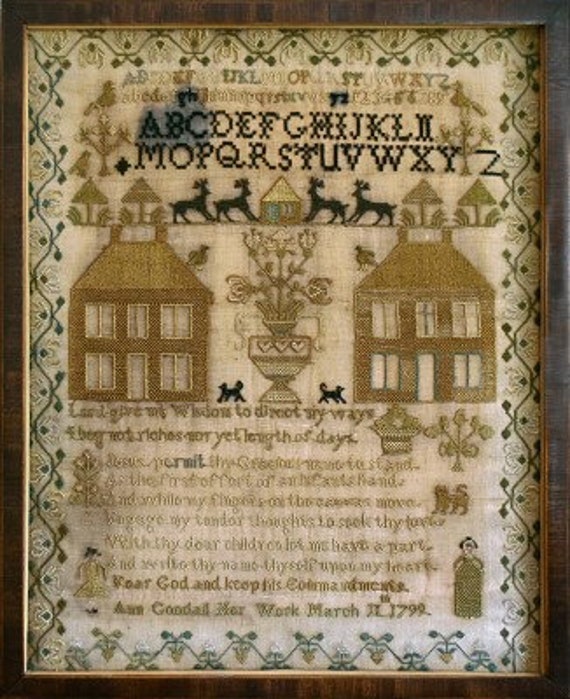 ABCDEFGHIJKLMNOPQRSTUVWXYZ
gh yz
ABCDEFGHIJKLII
MOPQRSTUVWXY Z
Lord give me Wisdom to direct my ways
I beg not riches nor yet length of days
Jesus permit thy Gracious name to stand
As the first effort of an Infants hand
And while my fingers on the canvas move
Engage my tender thoughts to seek thy love
With thy dear children let me have a part
And write thy name thyself upon my heart
Fear God and keep his Commandments
Ann Goodall Her Work March 11th 1799